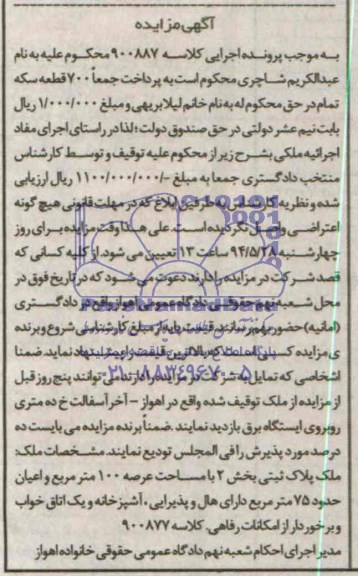 آگهی مزایده
به موجب پرونده اجرایی کلاسه ۹۰۰۸۸۷ محکوم علیه به نام
عبدالکریم شاجری محکوم است به پرداخت جمعاً ۷۰۰ قطعه سکه
تمام در حق محکوم له به نام خانم لیلا بریهی و مبلغ ۱/۰۰۰/۰۰۰ ریال
بابت نیم عشر دولتی در حق صندوق دولت؛ لذا در راستای اجرای مفاد
اجرائیه ملکی بشرح زیر از محکوم علیه توقیف و توسط کارشناس
منتخب دادگستری جمعا به مبلغ -/۱۱۰۰/۰۰۰/۰۰۰ ریال ارزیابی
شده و نظریه کارشناس به طرفین ابلاغ که در مهلت قانونی هیچ گونه
اعتراضی واصل نگردیده است. علی هذا وقت مزایده برای روز
چهارشنبه ۹۴/۵/۲۸ ساعت ۱۳ تعیین می شود. از کلیه کسانی که
قصد شرکت در مزایده را دارند دعوت می شود که در تاریخ فوق در
محل شعبه نهم حقوقی دادگاه عمومی اهواز واقع در دادگستری
(امانیه) حضور بهم رسانند. قیمت پایه از مبلغ کارشناسی شروع و برنده
ی مزایده کسی است که بالاترین قیمت را پیشنهاد نماید. ضمنا
اشخاصی که تمایل به شرکت در مزایده را دارند می توانند پنج روز قبل
از مزایده از ملک توقیف شده واقع در اهواز - آخر آسفالت خ ده متری
روبروی ایستگاه برق بازدید نمایند. ضمنا برنده مزایده می بایست ده
درصد مورد پذیرش را فی المجلس تودیع نمایند. مشخصات ملک:
ملک پلاک ثبتی بخش ۲ با مساحت عرصه ۱۰۰ متر مربع و اعیان
حدود ۷۵ متر مربع دارای هال و پذیرایی، آشپزخانه و یک اتاق خواب
و برخوردار از امکانات رفاهی. کلاسه ۹۰۰۸۷۷
مدیر اجرای احکام شعبه نهم دادگاه عمومی حقوقی خانواده اهواز
ParsNamadData
۰۲۱-۸۸۳۴۹۶۷۰-۵